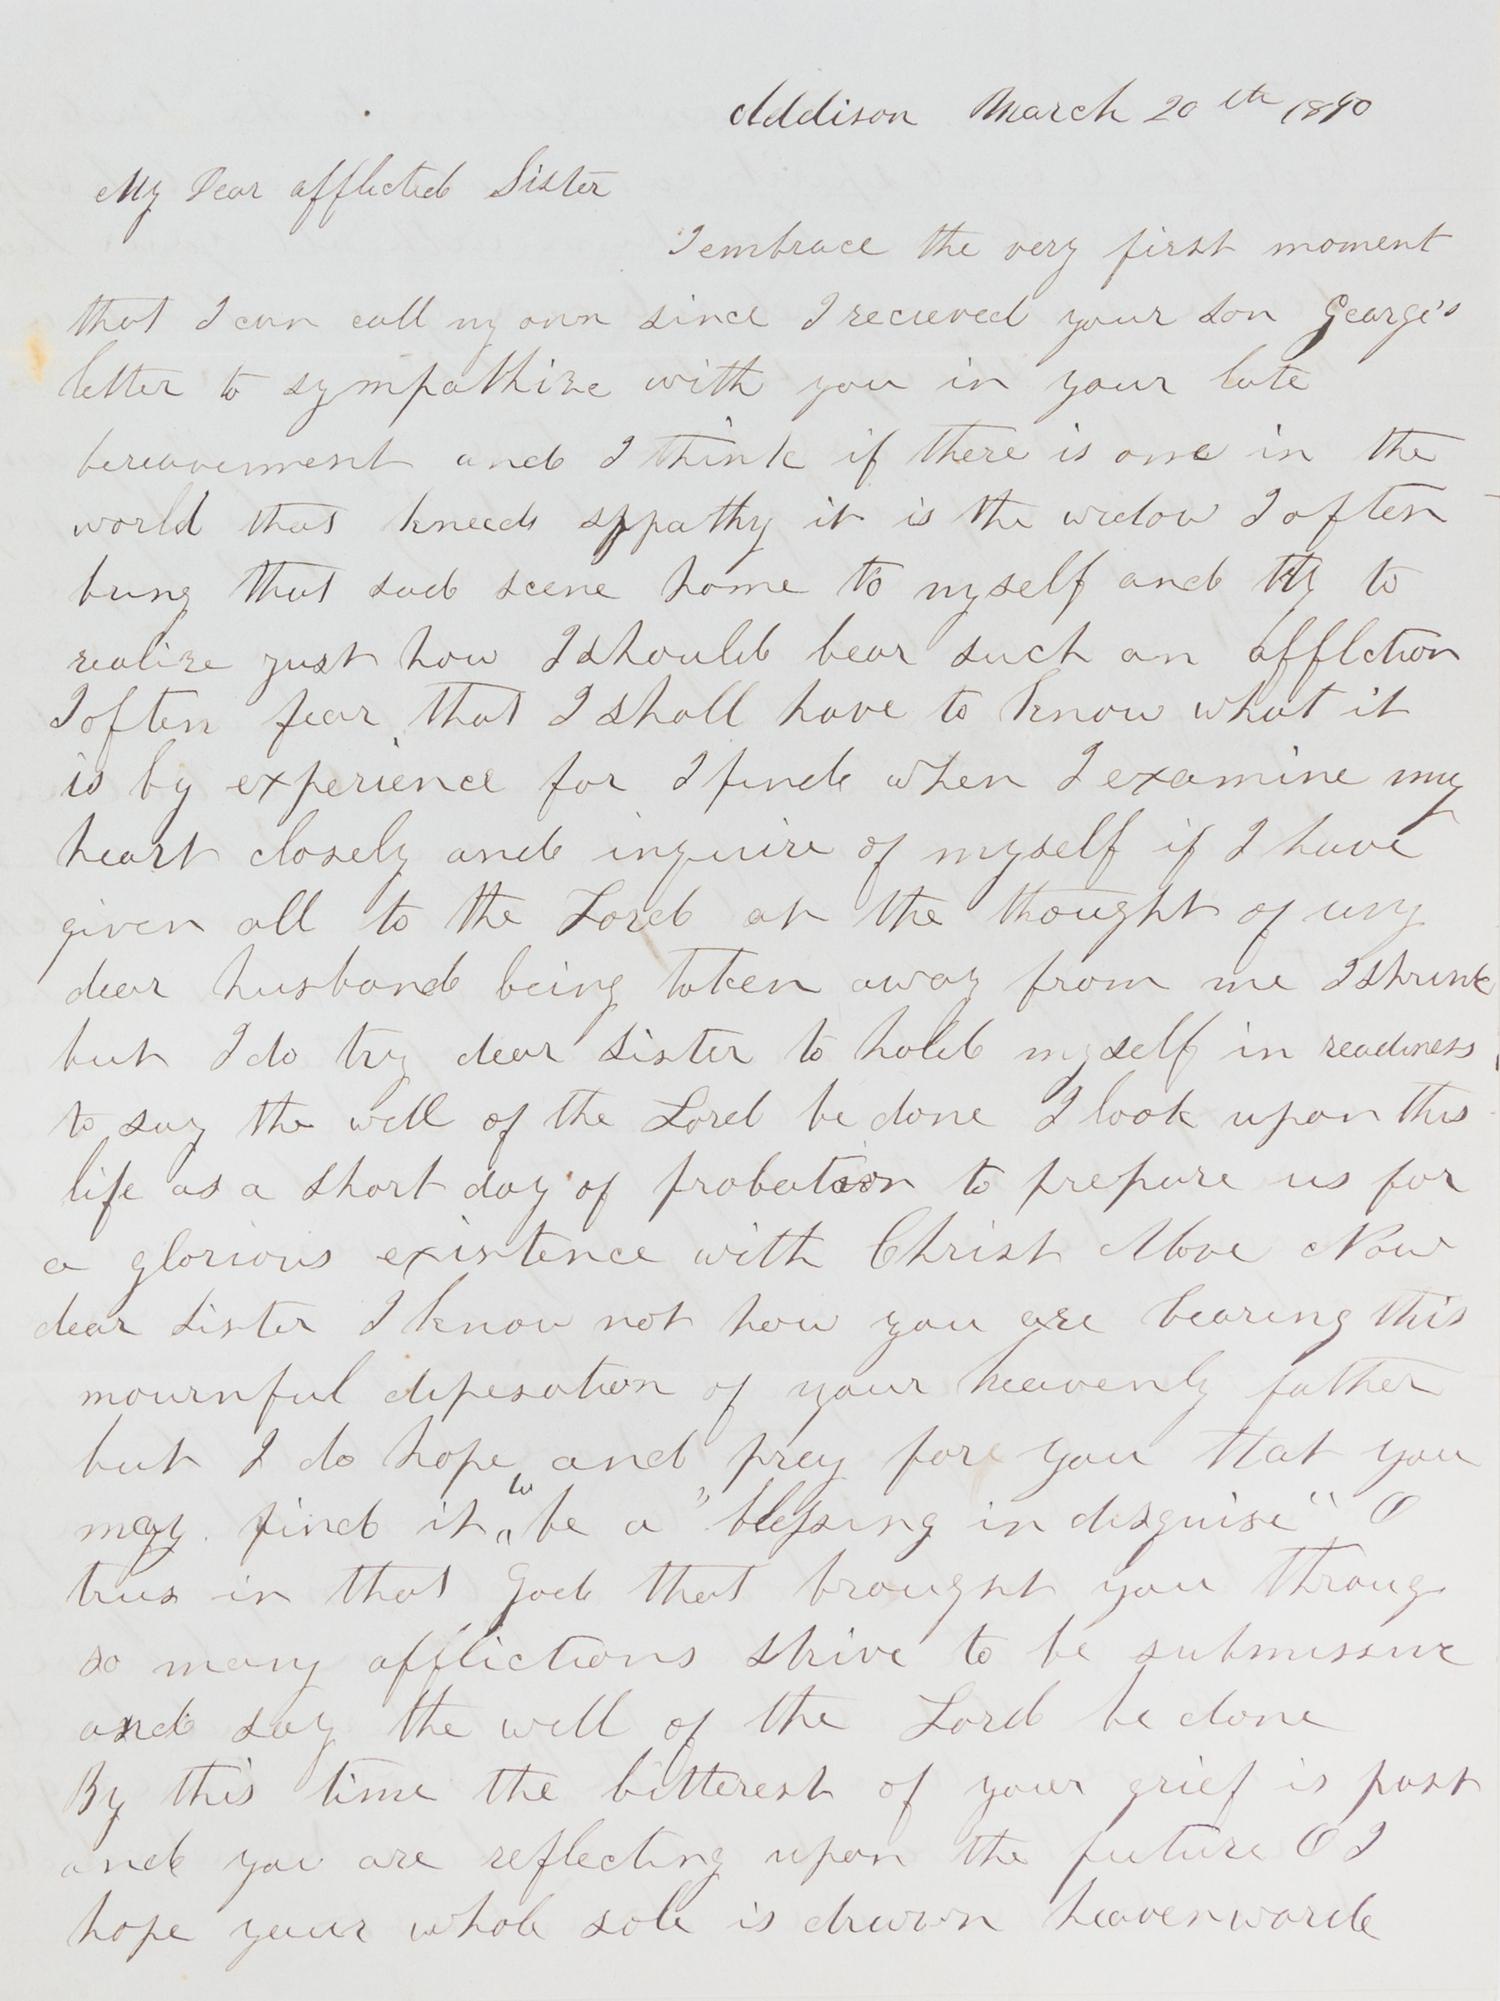 Addison March 20th 1890
My Dear afflicted Sister
I embrace the very first moment
that I can call my own since I recieved your son George's
letter to sympathize with you in your late
bereavenment and I think if there is one in the
world that kneeds sppathy it is the widow I often
bring that sad scene home to myself and try to
realize just how I should bear such an afflction
I often fear that I shall have to know what it
is by experience for I find when I examine my
heart closely and inquire of myself if I have
given all to the Lord at the thought of my
dear husband being taken away from me I shrink
but I do try dear sister to hold myself in readiness
to say the will of the Lord be done I look upon this
life as a short day of probation to prepare us for
a glorious existence with Christ Above Now
dear sister I know not how you are bearing this
mournful dipesation of your heavenly father
but I do hope and pray for you that you
may find it to be a "blessing in disguise" O
trus in that God that brought you throug
so many afflictions strive to be submissive
and say the will of the Lord be done
By this time the bitterest of your grief is past
and you are reflecting upon the future O I
hope your whole sole is drawn heavenward